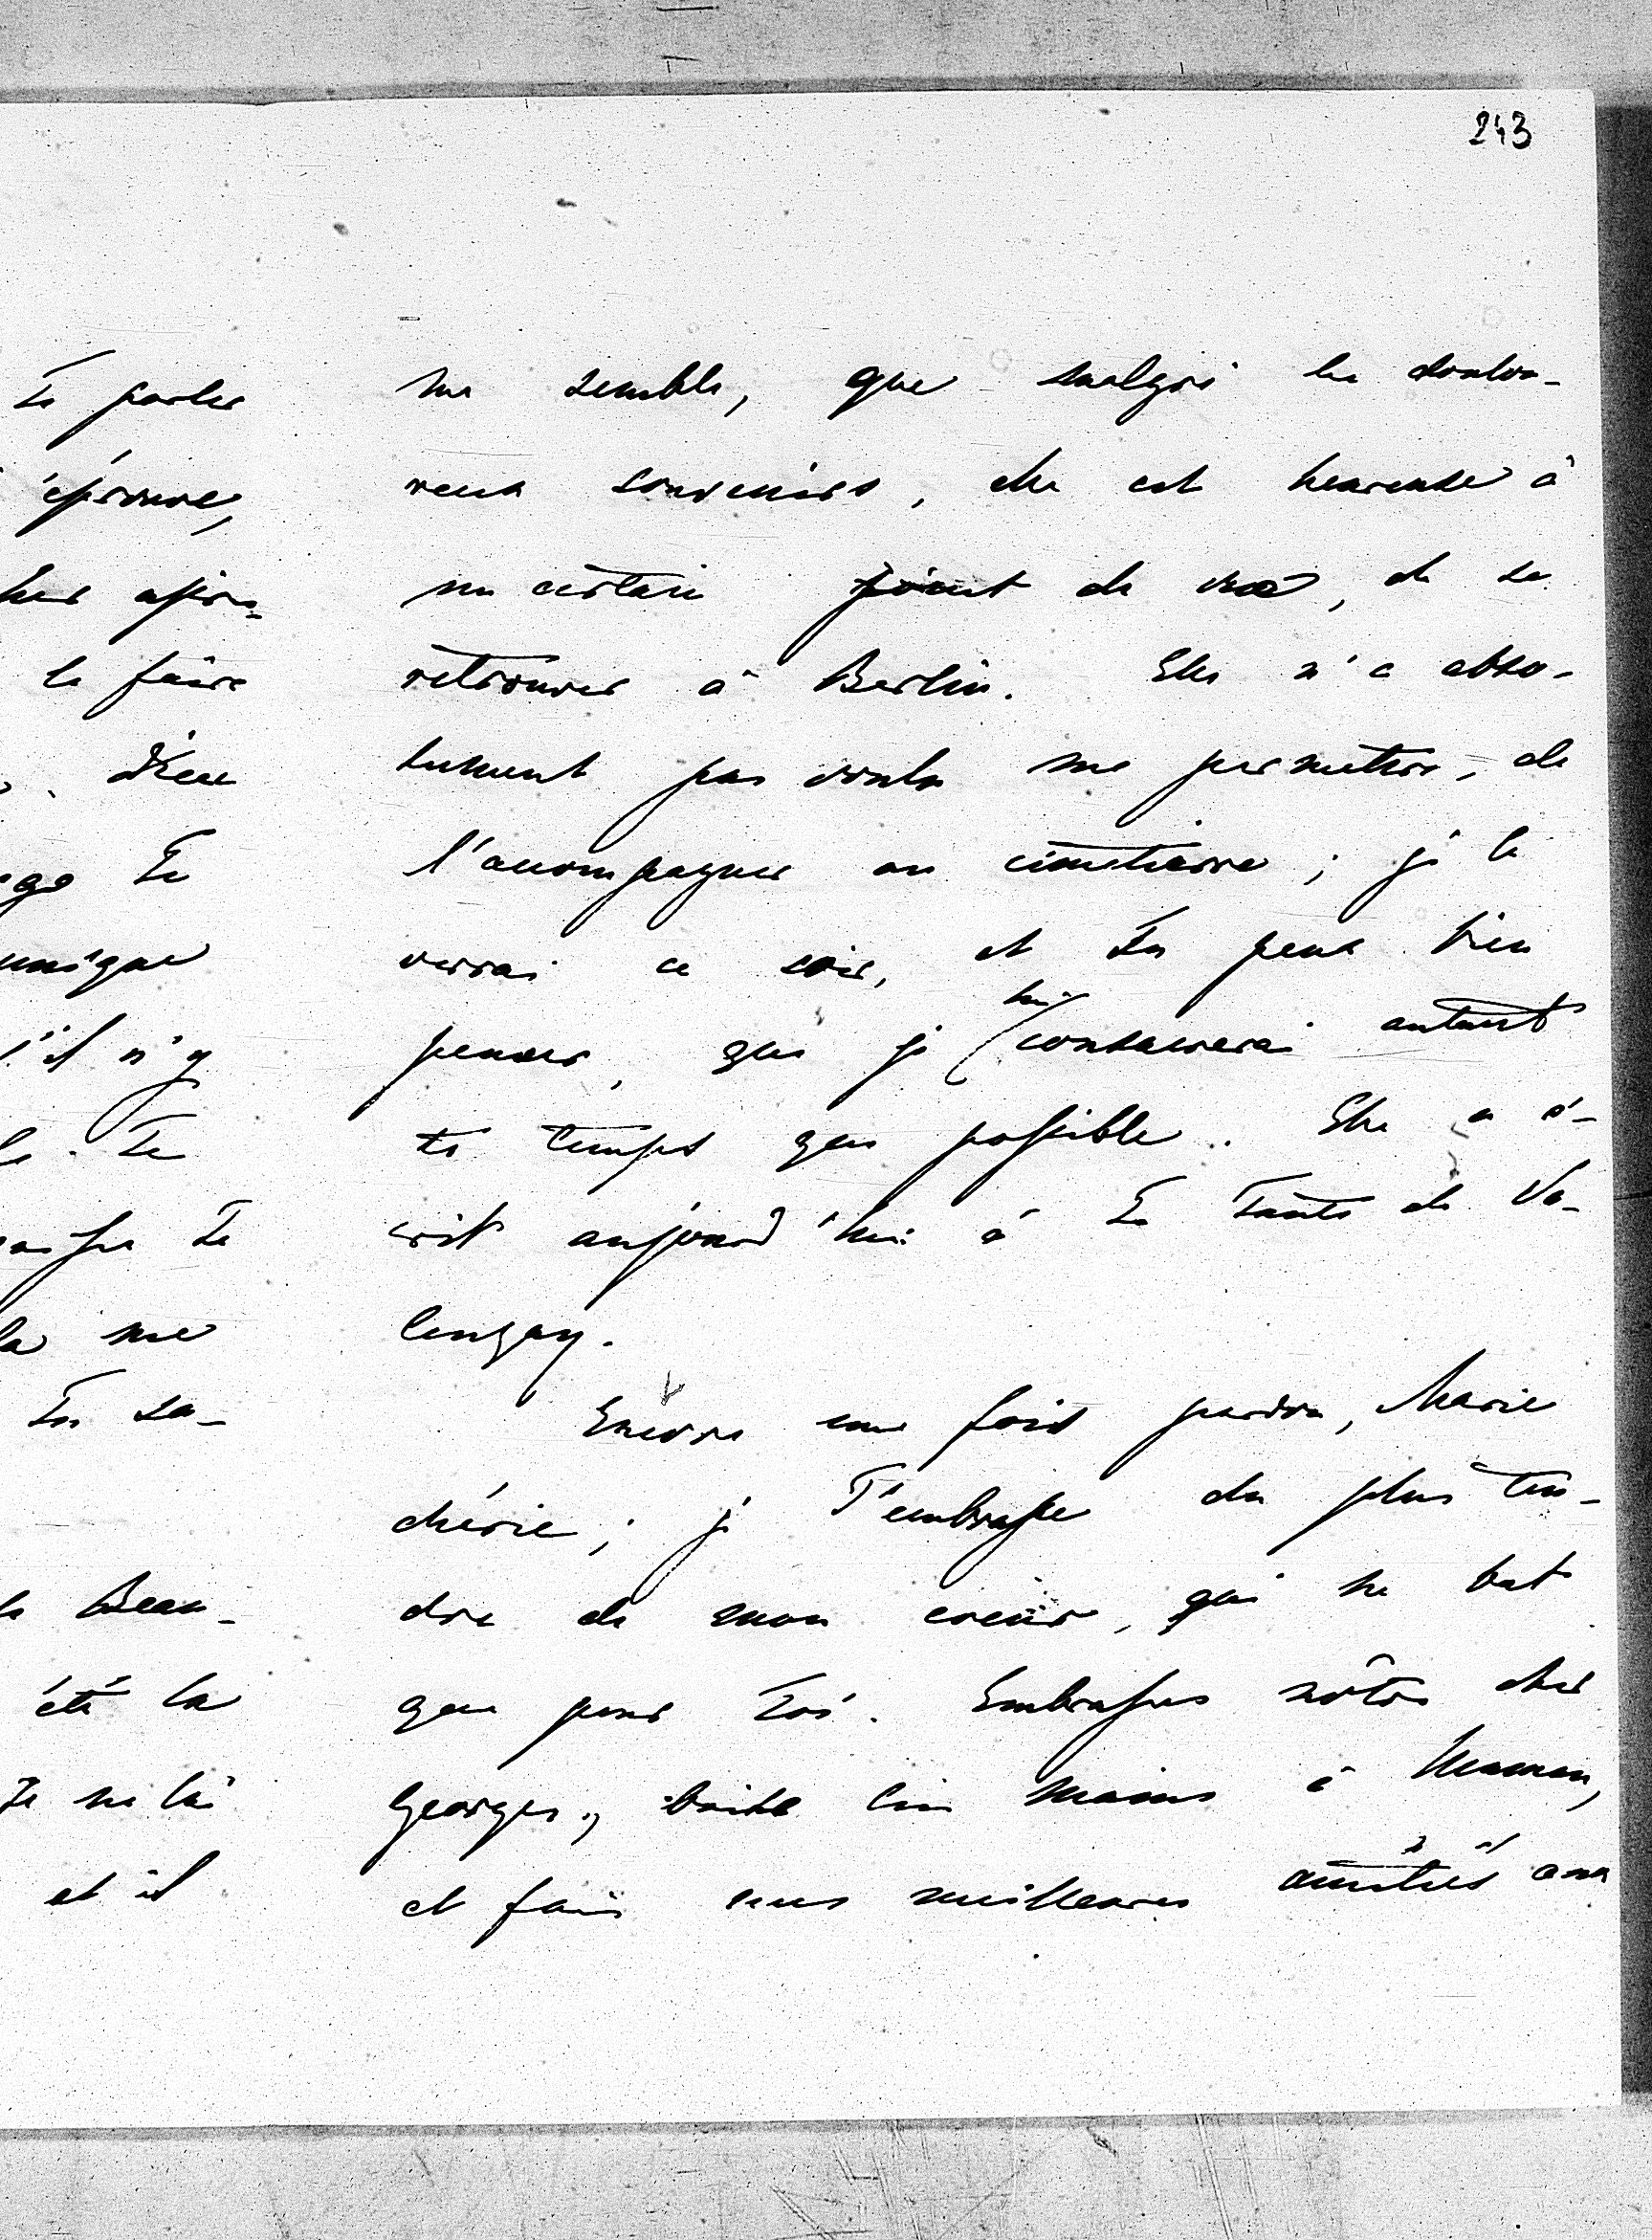 243
Te parler
éprouve,
le faire
Dieu
Te
unique
'il n'y
Te
Te
la me
Tu sa-
Beau-
été la
Je ne la
et il
me semble, que malgré les doulou-
reux souvenirs, elle est heureuse à
un certain point de vue, de se
retrouver à Berlin. Elle n'a abso-
lument pas voulu me permettre, de
l'accompagner au cimetière ; je la
verrai ce soir, et Tu peux bien
penser, que je lui consacrerai autant
de temps que possible. Elle a é-
crit aujourd'hui à Ta Tante de Va-
lençay.
Encore une fois pardon, Marie
chérie ; je T'embrasse du plus ten-
dre de mon coeur, qui ne bat
que pour Toi. Embrasses nôtre cher
Georges, baise les mains à Maman,
et fais mes meilleures amitiés aux